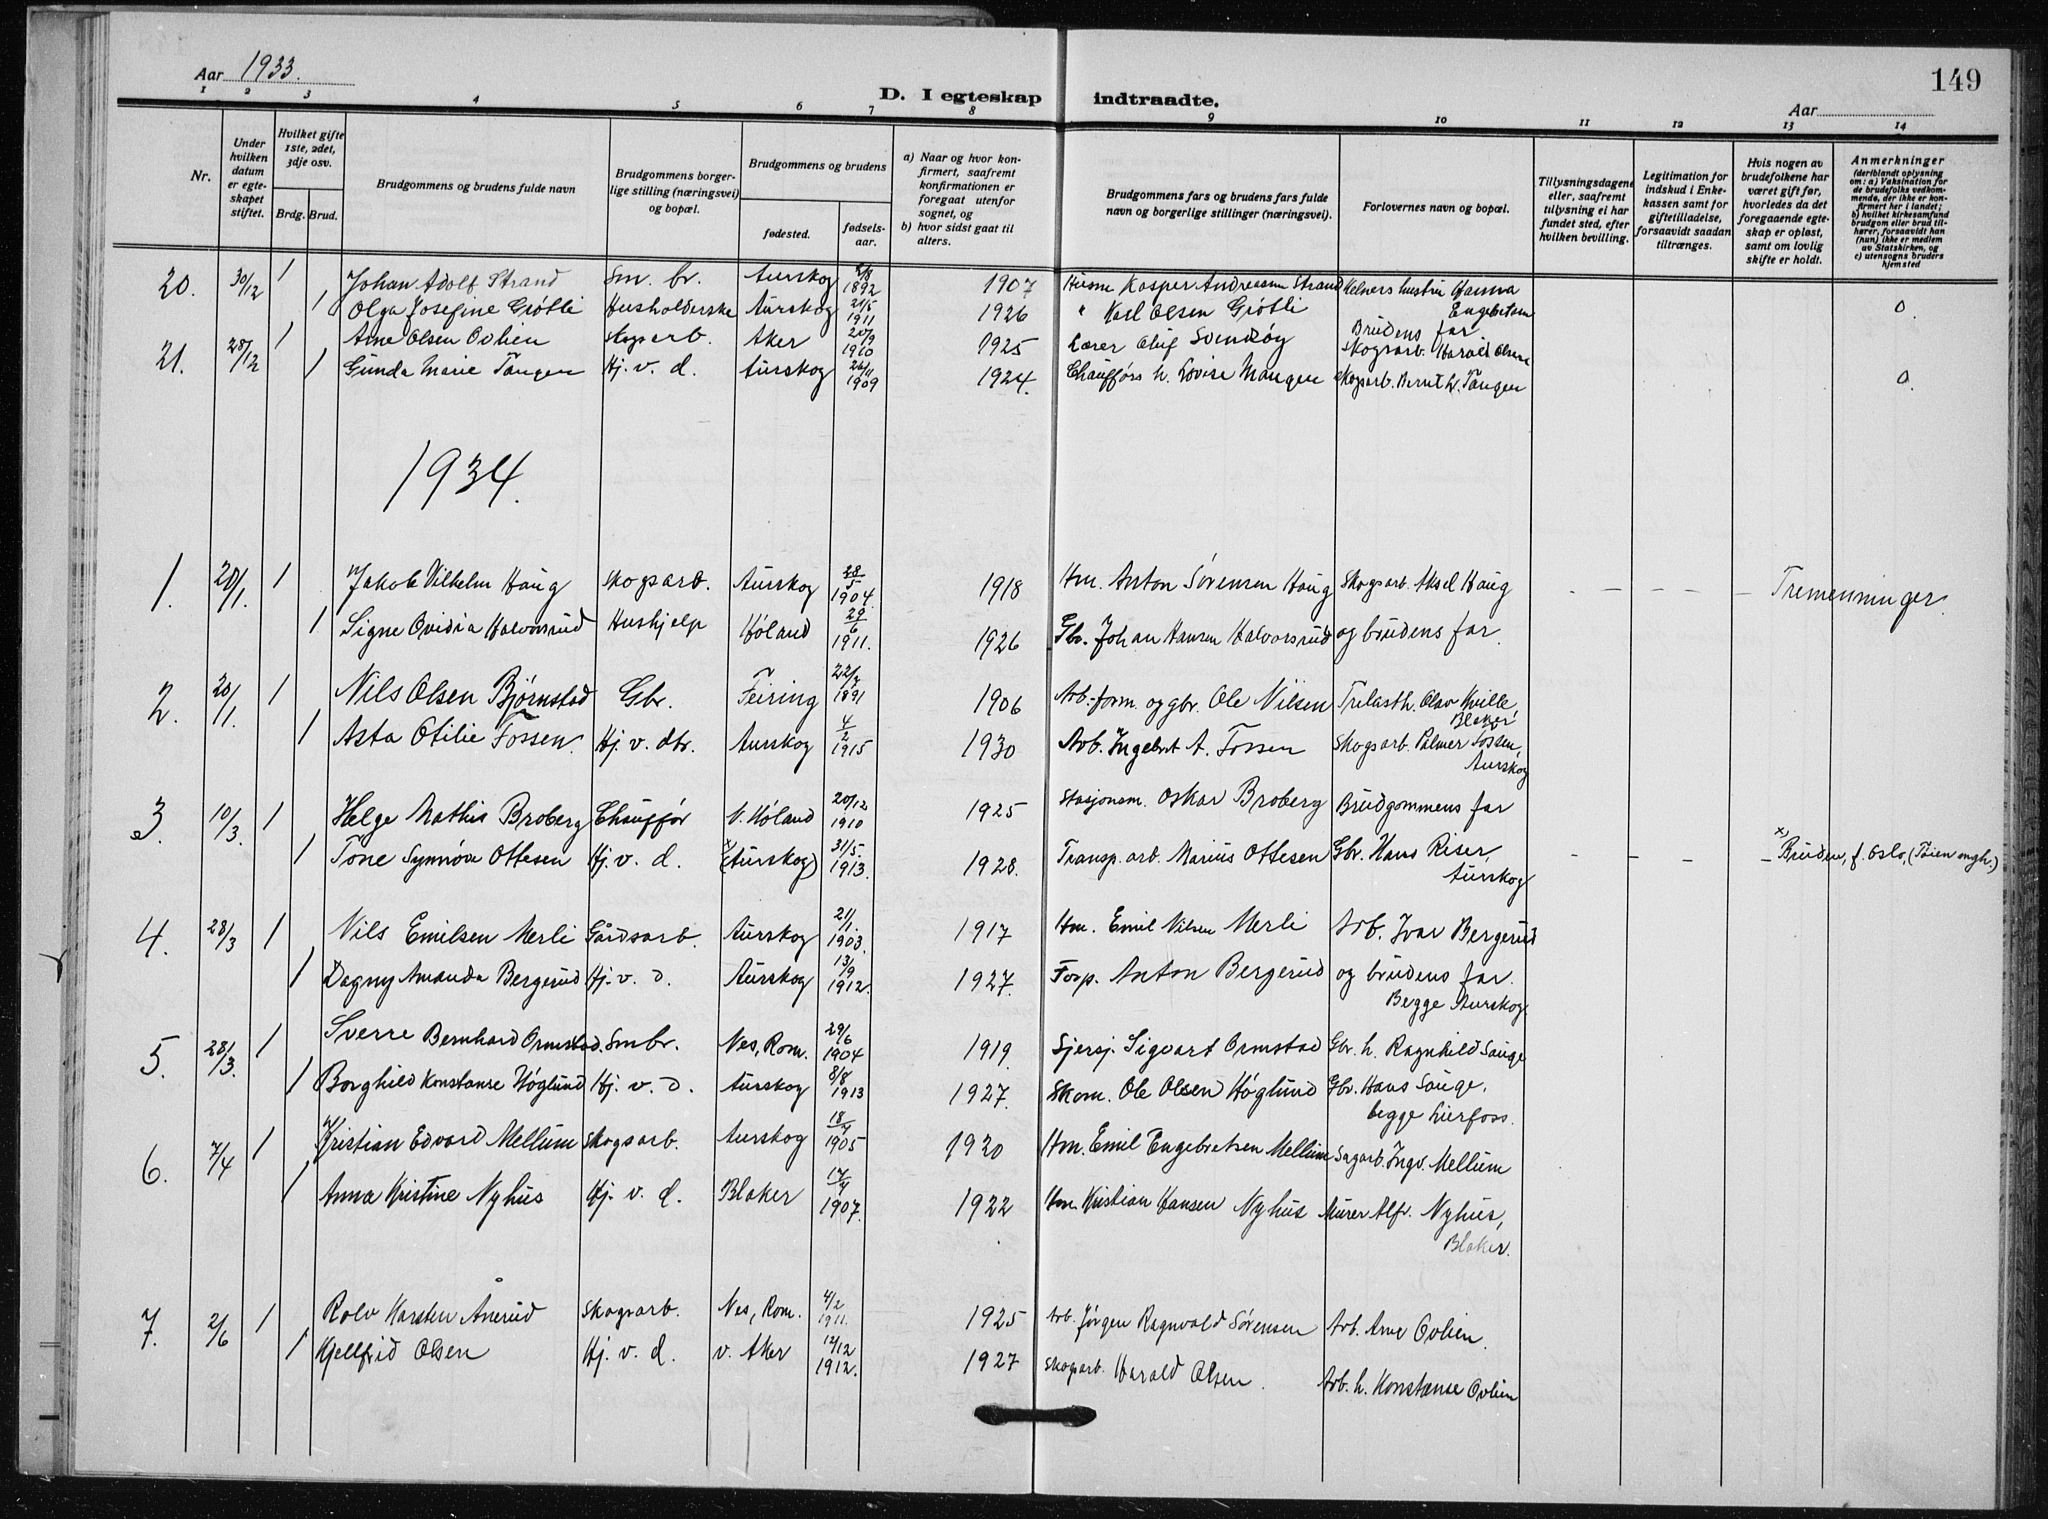 149
Aar 1933.
Aar
D. I egteskap indtraadte.
1 2 3 4 5 6 7 8 9 10 11 12 13 14
Nr.
Under hvilken datum er egteskapet stiftet.
Hvilket gifte 1ste, 2det, 3dje osv.
Brdg. Brud.
Brudgommens og brudens fulde navn
Brudgommens borgerlige stilling (næringsvei) og bopæl.
Brudgommens og brudens
fødested.
fødselsaar.
a) Naar og hvor konfirmert, saafremt konfirmationen er foregaat utenfor sognet, og
b) hvor sidst gaat til alters.
Brudgommens fars og brudens fars fulde navn og borgerlige stillinger (næringsvei).
Forlovernes navn og bopæl.
Tillysningsdagene eller, saafremt tillysning ei har fundet sted, efter hvilken bevilling.
Legitimation for indskud i Enkekassen samt for giftetilladelse, forsaavidt saadan tiltrænges.
Hvis nogen av brudefolkene har været gift før, hvorledes da det foregaaende egteskap er opløst, samt om lovlig skifte er holdt.
Anmerkninger (deriblandt oplysning om: a) Vaksination for de brudefolks vedkommende, der ikke er konfirmert her i landet; b) hvilket kirkesamfund brudgom eller brud tilhører, forsaavidt han (hun) ikke er medlem av Statskirken, og c) utensogns bruders hjemsted
20. 30/12 1 Johan Adolf Strand Sm. br. Aurskog 2/8 1892 1907 Husm Kasper Andreassen Strand Kelners hustru Hanna Engebretsen
1 Olga Josefine Grøtli Husholderske Aurskog 21/5 1911 1926 " Karl Olsen Grøtli Brudens far 0.
21. 28/12 1 Arne Olsen Ovlien Skogsarb. Aker 20/9 1910 1925 Lærer Oluf Svendsøy Skogsarb. Harald Olsen
1 Gunda Marie Tangen Hj. v. d. Aurskog 26/11 1909 1924. Chaufførs h. Lovise Mangen Skogsarb. Bernt H. Tangen 0.
1934.
1. 20/1. 1 Jakob Vilhelm Haug Skogsarb. Aurskog 28/5 1904. 1918 Hm. Anton Sørensen Haug Skogsarb. Aksel Haug - - - - Tremenninger.
1 Signe Ovidia Halvorsrud Hushjelp Høland 29/6 1911. 1926 Gbr. Johan Hansen Halvorsrud og brudens far.
2. 20/11. 1 Nils Olsen Bjørnstad Gbr. Feiring 22/7 1891 1906 Arb.form. og gbr. Ole Nilsen Trelasth. Olav Kville, Blaker
1 Asta Otilie Fossen. Hj. v. dbr. Aurskog 4/2 1915 1930 Arb. Ingebret A. Fossen Skogsarb. Palmer Fossen, Aurskog
3. 10/3. 1 Helge Mathis Broberg Chauffør N. Høland 20/12 1910 1925 Stasjonsm. Oskar Broberg Brudgommens far
1 Tone Synnøve Ottesen Hj. v. d. x) (Aurskog) 31/5. 1913. 1928. Transp. arb. Marius Ottesen Gbr. Hans Riser, Aurskog - - - - x) Bruden, f. Oslo, (Tøien mgh.)
4. 28/3 1 Nils Emilsen Merli Gårdsarb. Aurskog 21/1. 1903. 1917 Hm. Emil Nilsen Merli Arb. Ivar Bergerud
1 Dagny Amanda Bergerud Hj. v. d. Aurskog 13/9 1912. 1927. Forp. Anton Bergerud og brudens far. Begge Aurskog
5. 28/3. 1 Sverre Bernhard Ormstad. Smbr. Nes, Rom. 29/6 1904 1919 Sjersj. Sigvart Ormstad Gbr. h. Ragnhild Sauge
1 Borghild Konstanse Høglund Hj. v. d. Aurskog 8/8 1913 1927. Skom. Ole Olsen Høglund Gbr. Hans Sauge, begge Lierfoss.
6. 7/4 1 Kristian Edvard Mellum Skogsarb. Aurskog 18/4 1905 1920 Hm. Emil Engebretsen Mellum Sagarb. Ingv. Mellum
1 Anna Kristine Nyhus Hj. v. d. Blaker 17/4 1907. 1922 Hm. Kristian Hansen Nyhus Murer Alfr. Nyhus, Blaker.
7. 2/6 1 Rolv Karsten Ånerud Skogsarb. Nes, Rom. 4/2 1911. 1925 Arb. Jørgen Ragnvald Sørensen Arb. Arne Ovlien.
1 Kjellfrid Olsen Hj. v. d. v. Aker 12/12 1912. 1927 Skogsarb. Harald Olsen. Arb. h. Konstanse Ovlien